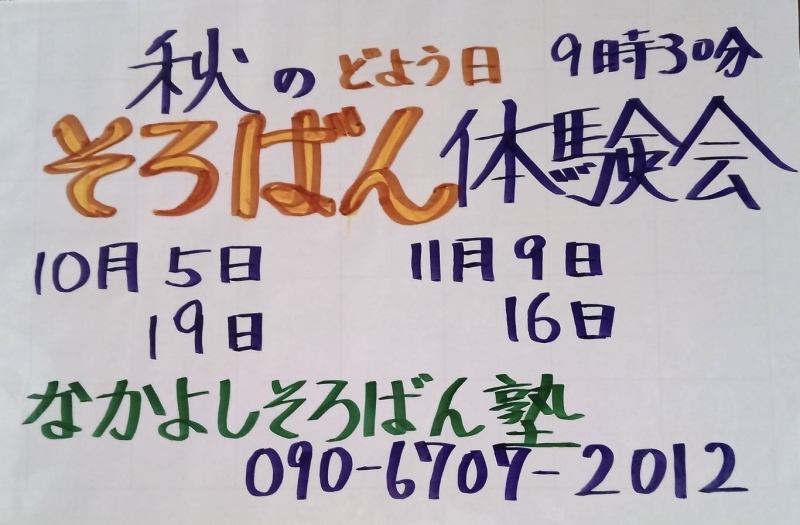 秋のどよう日 9時30分
そろばん体験会
10月5日 11月9日
19日 16日
なかよしそろばん塾
090-6707-2012